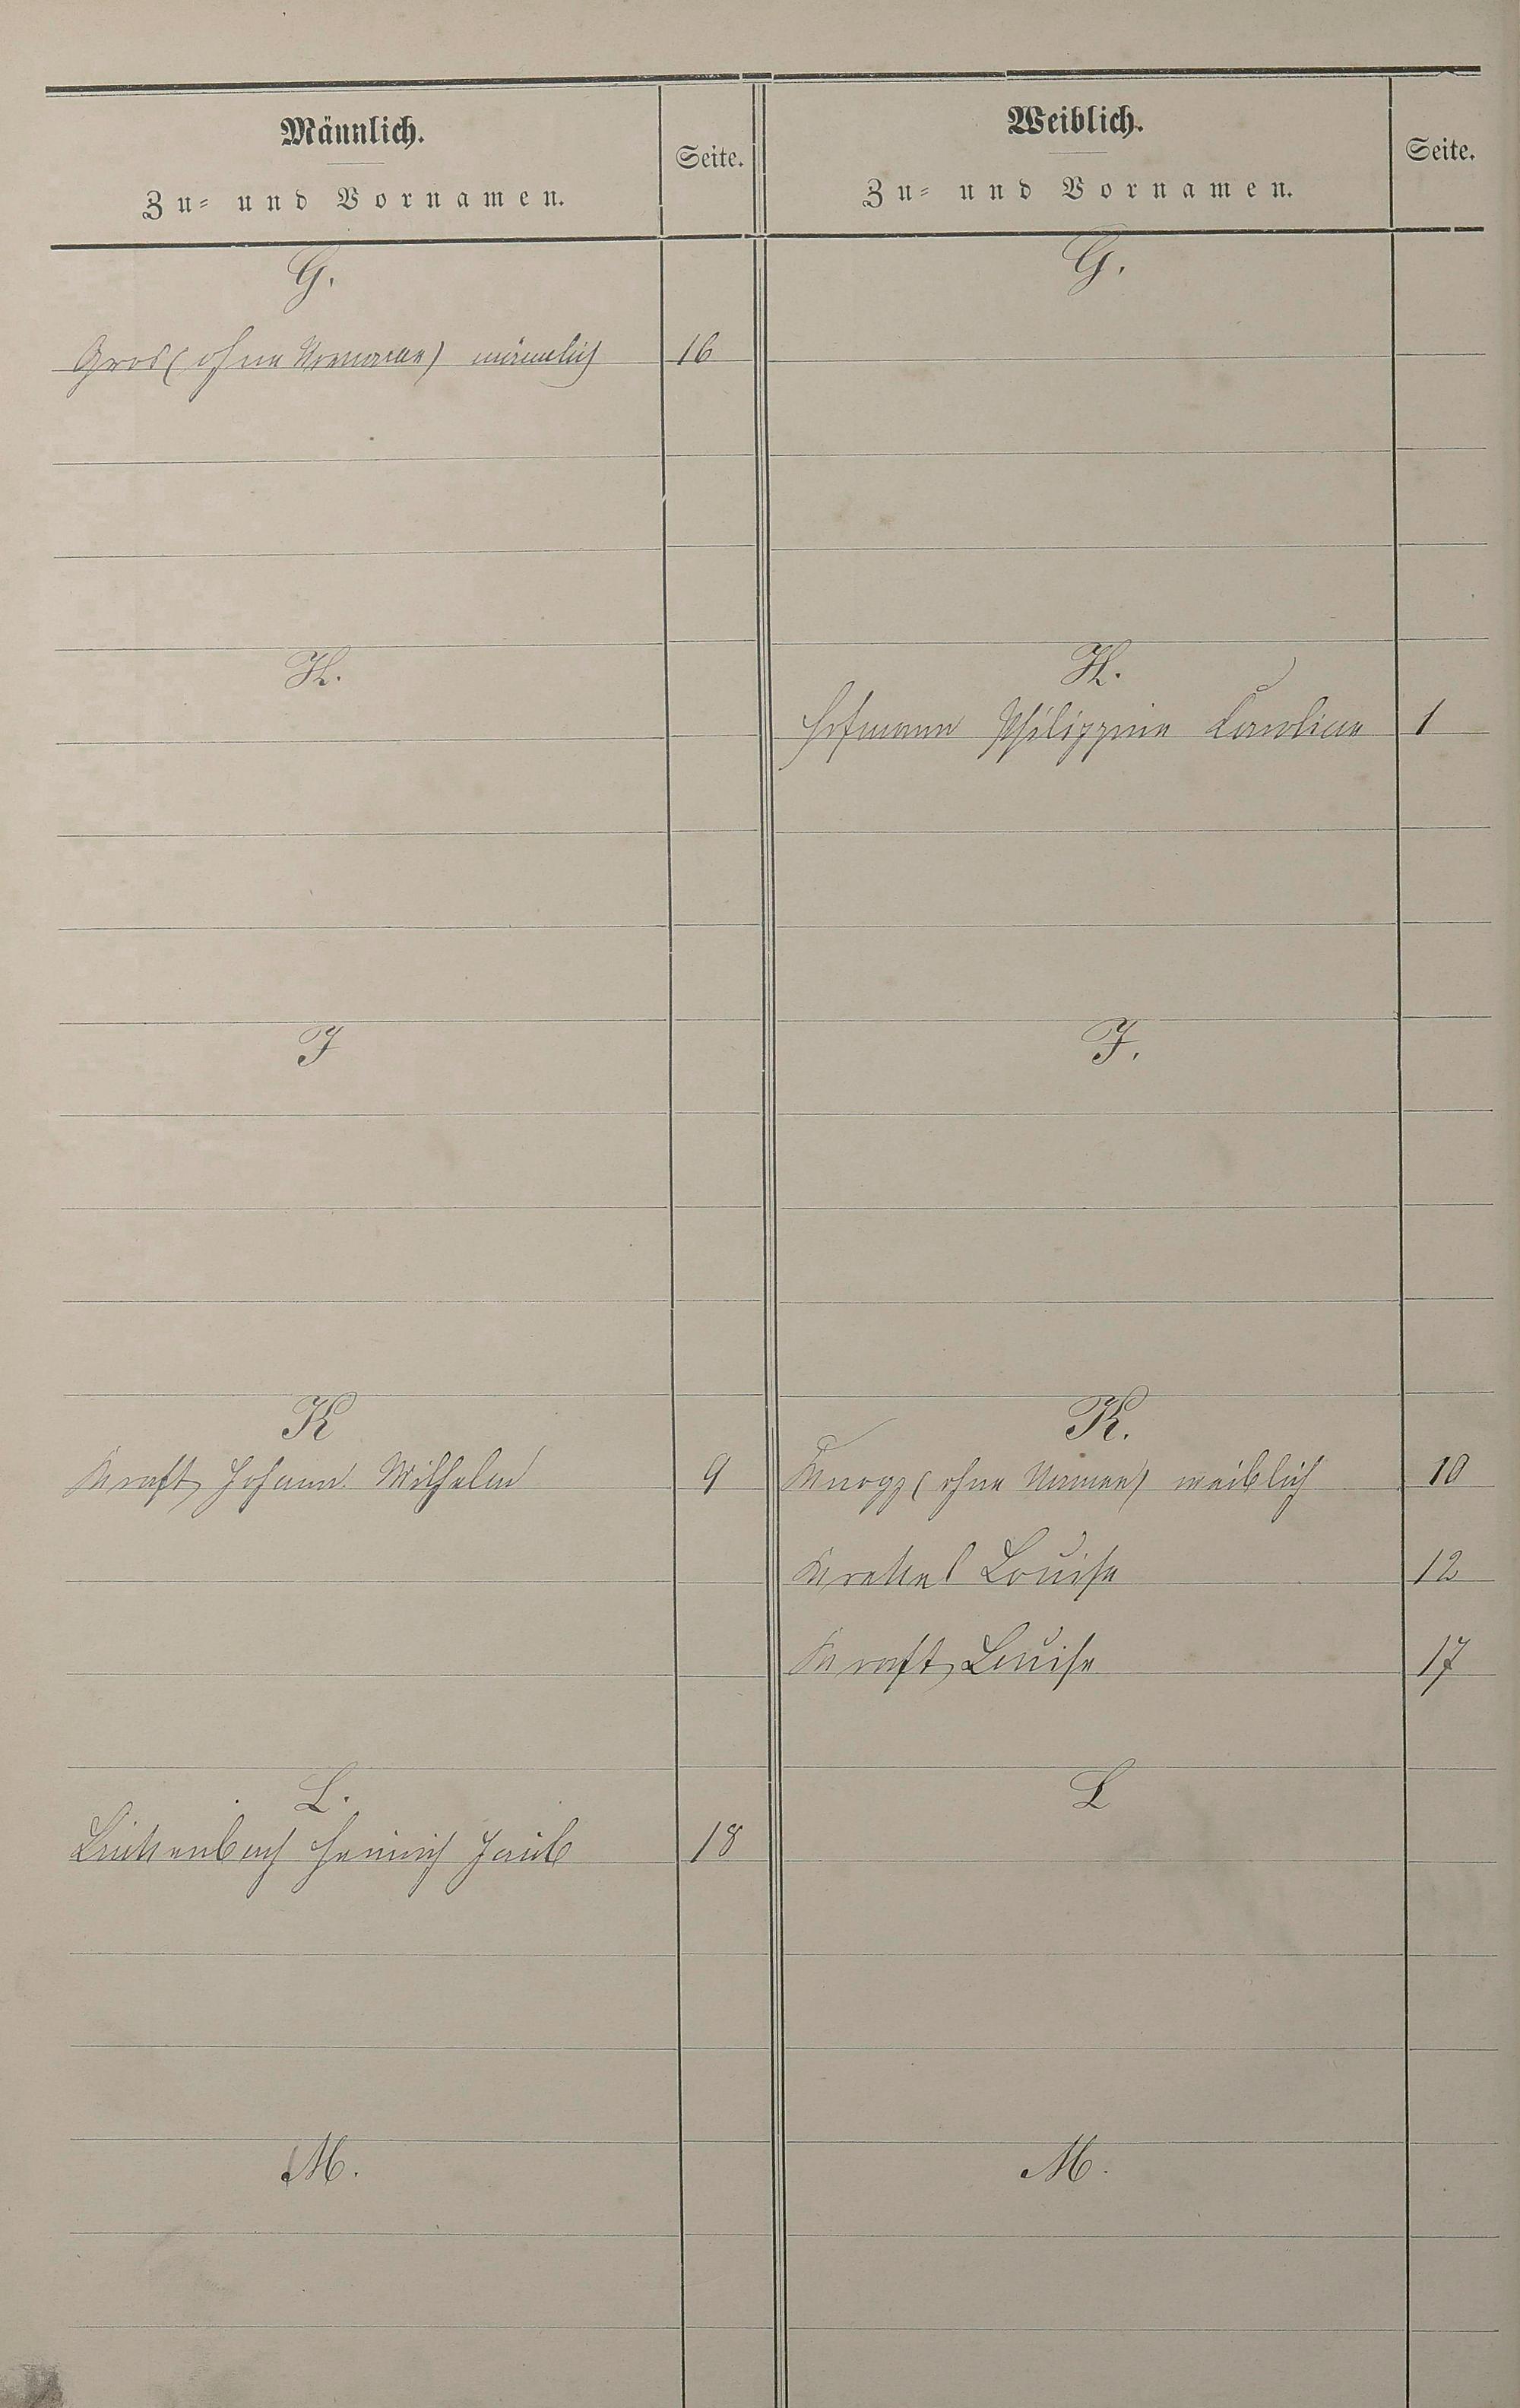 Männlich.
Zu- und Vornamen.
Seite.
Weiblich.
Zu- und Vornamen.
Seite.
G.
G.
Gros (ohne Vorname) männlich 16
H.
H.
Hofmann Philippine Karoline 1
J
J.
K
K.
Kraft Johann Wilhelm 9
Knopp (ohne Namen) weiblich 10
Krekel Louise 12
Kraft Louise 17
L.
L
Lückenbach Heinrich Jacob 18
M.
M.